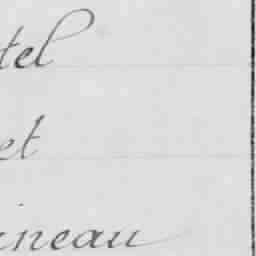 tel
et
ineau